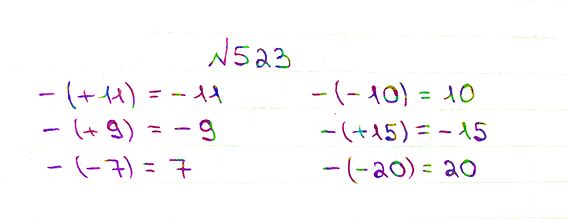 №523
-(+11) = -11 -(-10) = 10
-(+9) = -9 -(+15) = -15
-(-7) = 7 -(-20) = 20